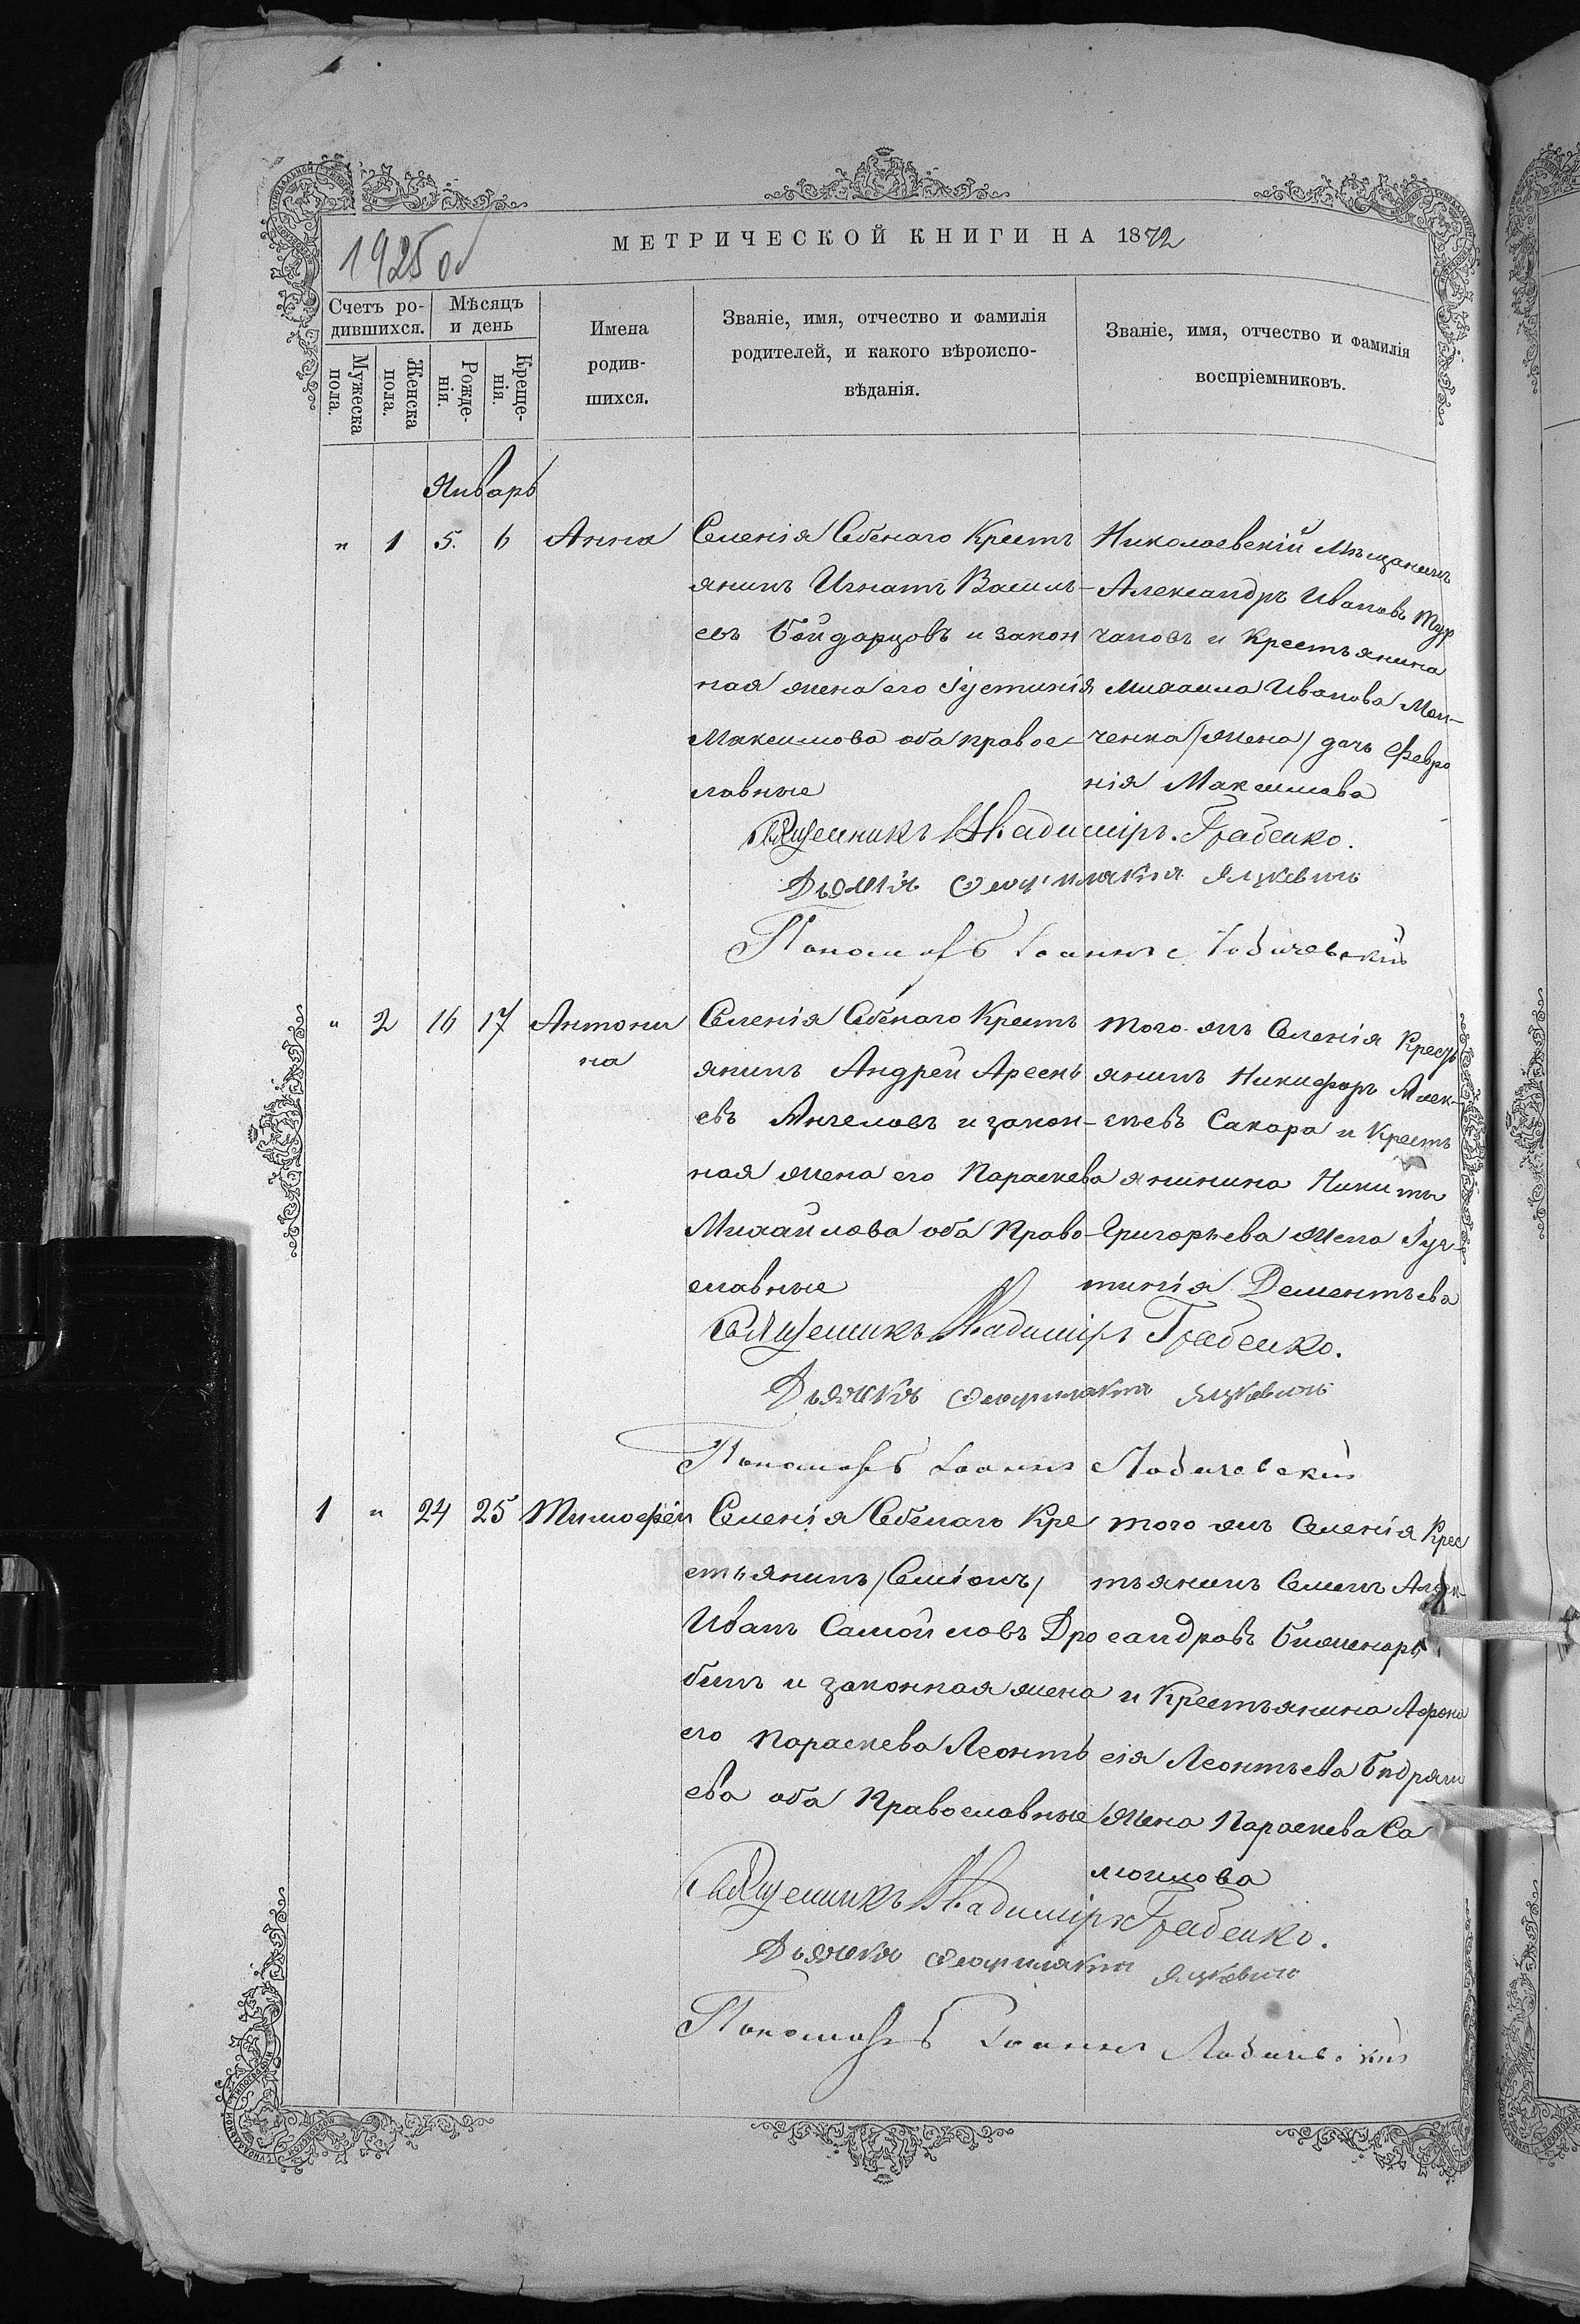 1925 об
МЕТРИЧЕСКОЙ КНИГИ НА 1872
Счетъ ро-
дившихся.
Мѣсяцъ
и день
Мужеска
пола.
Женска
пола.
Рожде-
нія.
Креще-
нія.
Имена
родив-
шихся.
Званіе, имя, отчество и фамилія
родителей, и какого вѣроиспо-
вѣданія.
Званіе, имя, отчество и фамилія
воспріемниковъ.
Январь
" 1 5. 6 Анна
Селенія Събнаго Кресть
янинъ Игнатъ Василь-
евъ и закон
ная жена его Іустинія
Максимова оба правос-
лавные
Николаевскій Мѣщанинъ
Александръ Ивановъ
чановъ и Крестьянина
Михаила Иванова
ченка /жена/ дочь Февро
нія Максимова
Священникъ Владиміръ Грабенко.
Дьячекъ Феофилактъ Яцкевичъ
Пономарь Іоаннъ Лобачевскій
" 2 16 17 Антони
на
Селенія Кресть
янинъ Андрей Арсень
евъ Ангеловъ и закон-
ная жена его Параскева
Михайлова оба Право-
славные
того жъ Селенія Кресть
янинъ Никифоръ Алек-
сѣевъ Сакара и Кресть
янинина Никиты
Григорьева жена Іус-
тинія Дементьева
Священникъ Владиміръ Грабенко.
Дьячекъ Феофилактъ Яцкевичъ
Пономарь Іоаннъ Лобачевскій
1 " 24 25 Тимофей
Селенія Кре
стьянинъ /Симіонъ/
Иванъ Самойловъ Дро
бинъ и законная жена
его Параскева Леонть
ева оба Православные
того жъ Селенія Крес
тьянинъ Семенъ Алек-
сандровъ
и Крестьянина Афона
сія Леонтьева
жена Параскева Са
моилова
Священникъ Владиміръ Грабенко.
Дьячекъ Феофилактъ Яцкевичъ
Пономарь Іоаннъ Лобачевскій